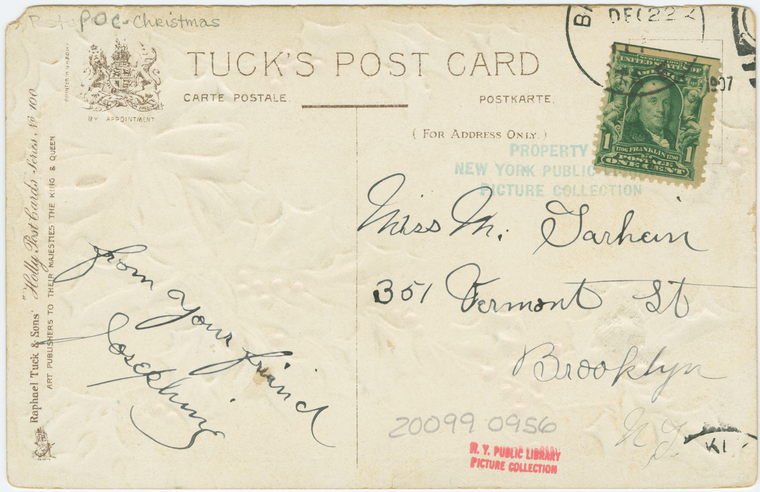 POC-Christmas
TUCK'S POST CARD
CARTE POSTALE.
POSTKARTE.
BY APPOINTMENT
(FOR ADDRESS ONLY.)
Raphael Tuck & Sons' "Holly Post Cards" Series, No 100.
ART PUBLISHERS TO THEIR MAJESTIES THE KING & QUEEN
DEC 22
1907
UNITED STATES OF
AMERICA
1 FRANKLIN 1
POSTAGE
ONE CENT
PROPERTY
NEW YORK PUBLIC
PICTURE COLLECTION
from your friend
Josephine
Miss M.
351 Vermont St
Brooklyn
N.Y.
20099 0956
N. Y. PUBLIC LIBRARY
PICTURE COLLECTION